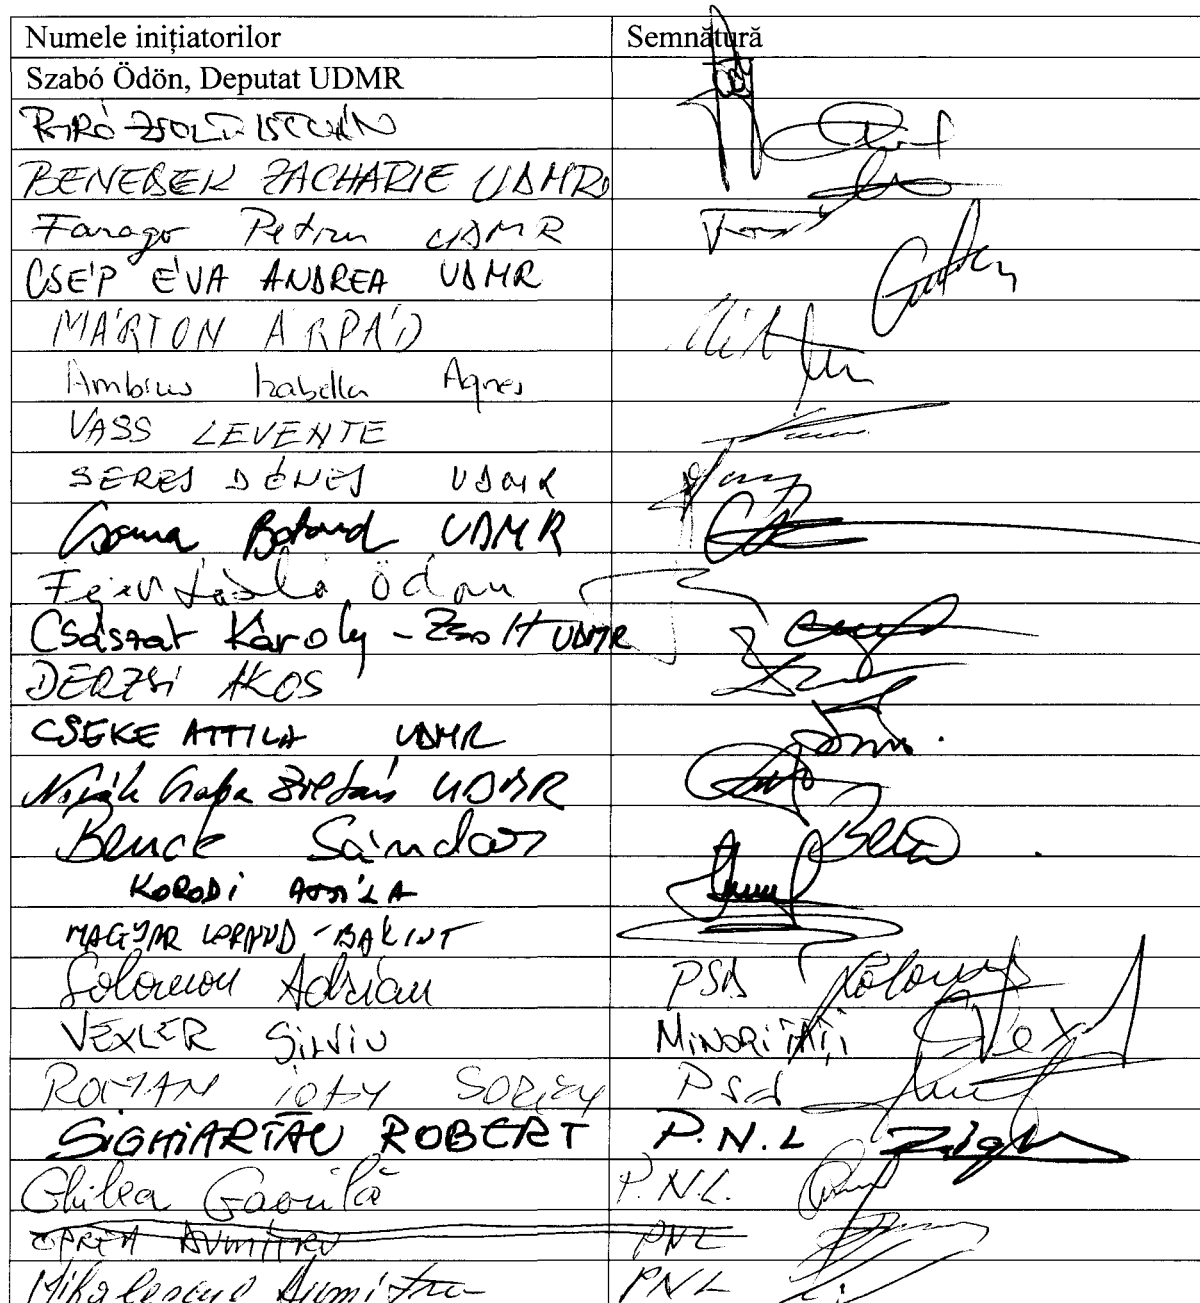 Numele inițiatorilor Semnătură
Szabó Ödön, Deputat UDMR
BIRÓ ZSOLT ISTVÁN
BENEDEK ZACHARIE UDMR
Farago Petru UDMR
CSÉP ÉVA ANDREA UDMR
MÁRTON ÁRPÁD
Ambrus Izabella Agnes
VASS LEVENTE
SERES DÉNES UDMR
Csoma Botond UDMR
Fejér László Ödön
Császár Károly - Zsolt UDMR
DERZSI AKOS
CSEKE ATTILA UDMR
Zoltán UDMR
Bende Sándor
KORODI ATTILA
MAGYAR LORAND - BALINT
Solomon Adrian PSD
VEXLER SILVIU MINORITĂȚI
ROMAN IOAN SORIN PSD
SIGHIARTĂU ROBERT P.N.L
Ghilea Gavrilă P.N.L.
OPREA DUMITRU PNL
Mihalescul Dumitru PNL